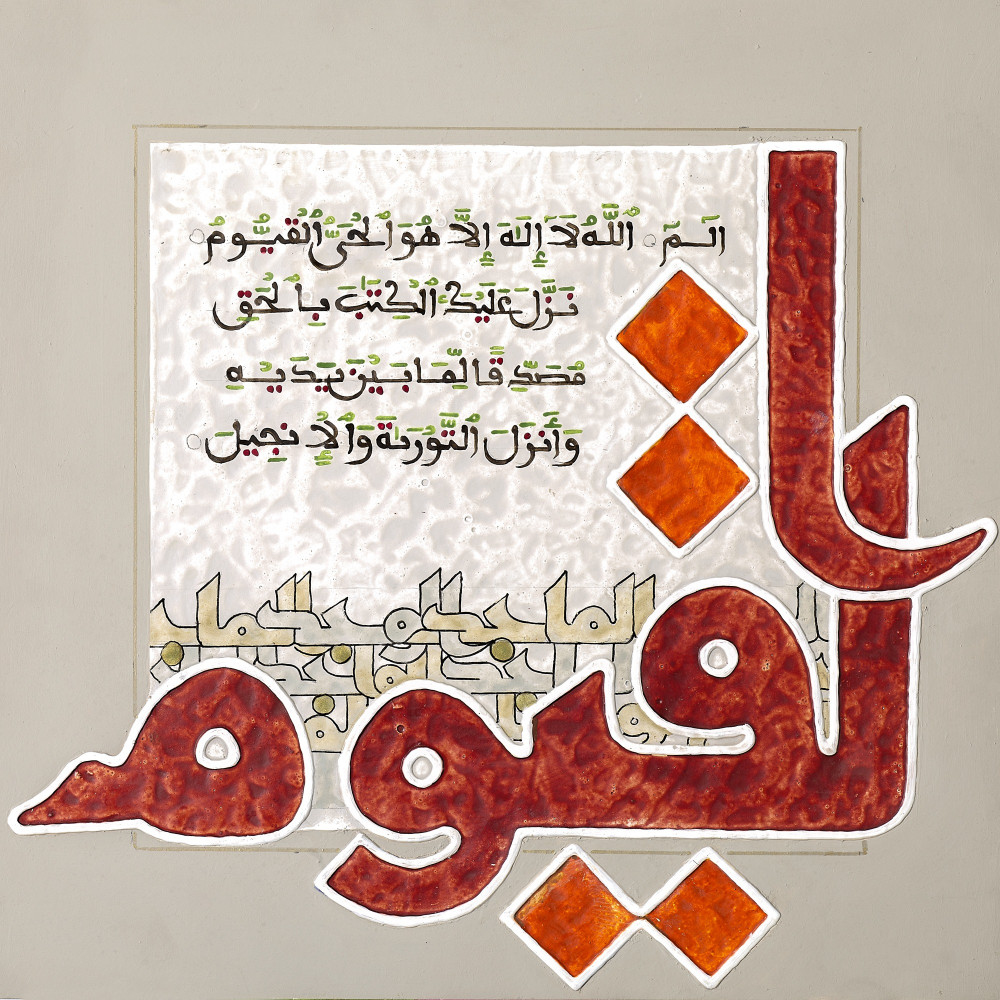 الٓمٓ ٱللَّهُ لَآ إِلَٰهَ إِلَّا هُوَ ٱلْحَىُّ ٱلْقَيُّومُ
نَزَّلَ عَلَيْكَ ٱلْكِتَٰبَ بِٱلْحَقِّ
مُصَدِّقًا لِّمَا بَيْنَ يَدَيْهِ
وَأَنزَلَ ٱلتَّوْرَىٰةَ وَٱلْإِنجِيلَ
القيوم